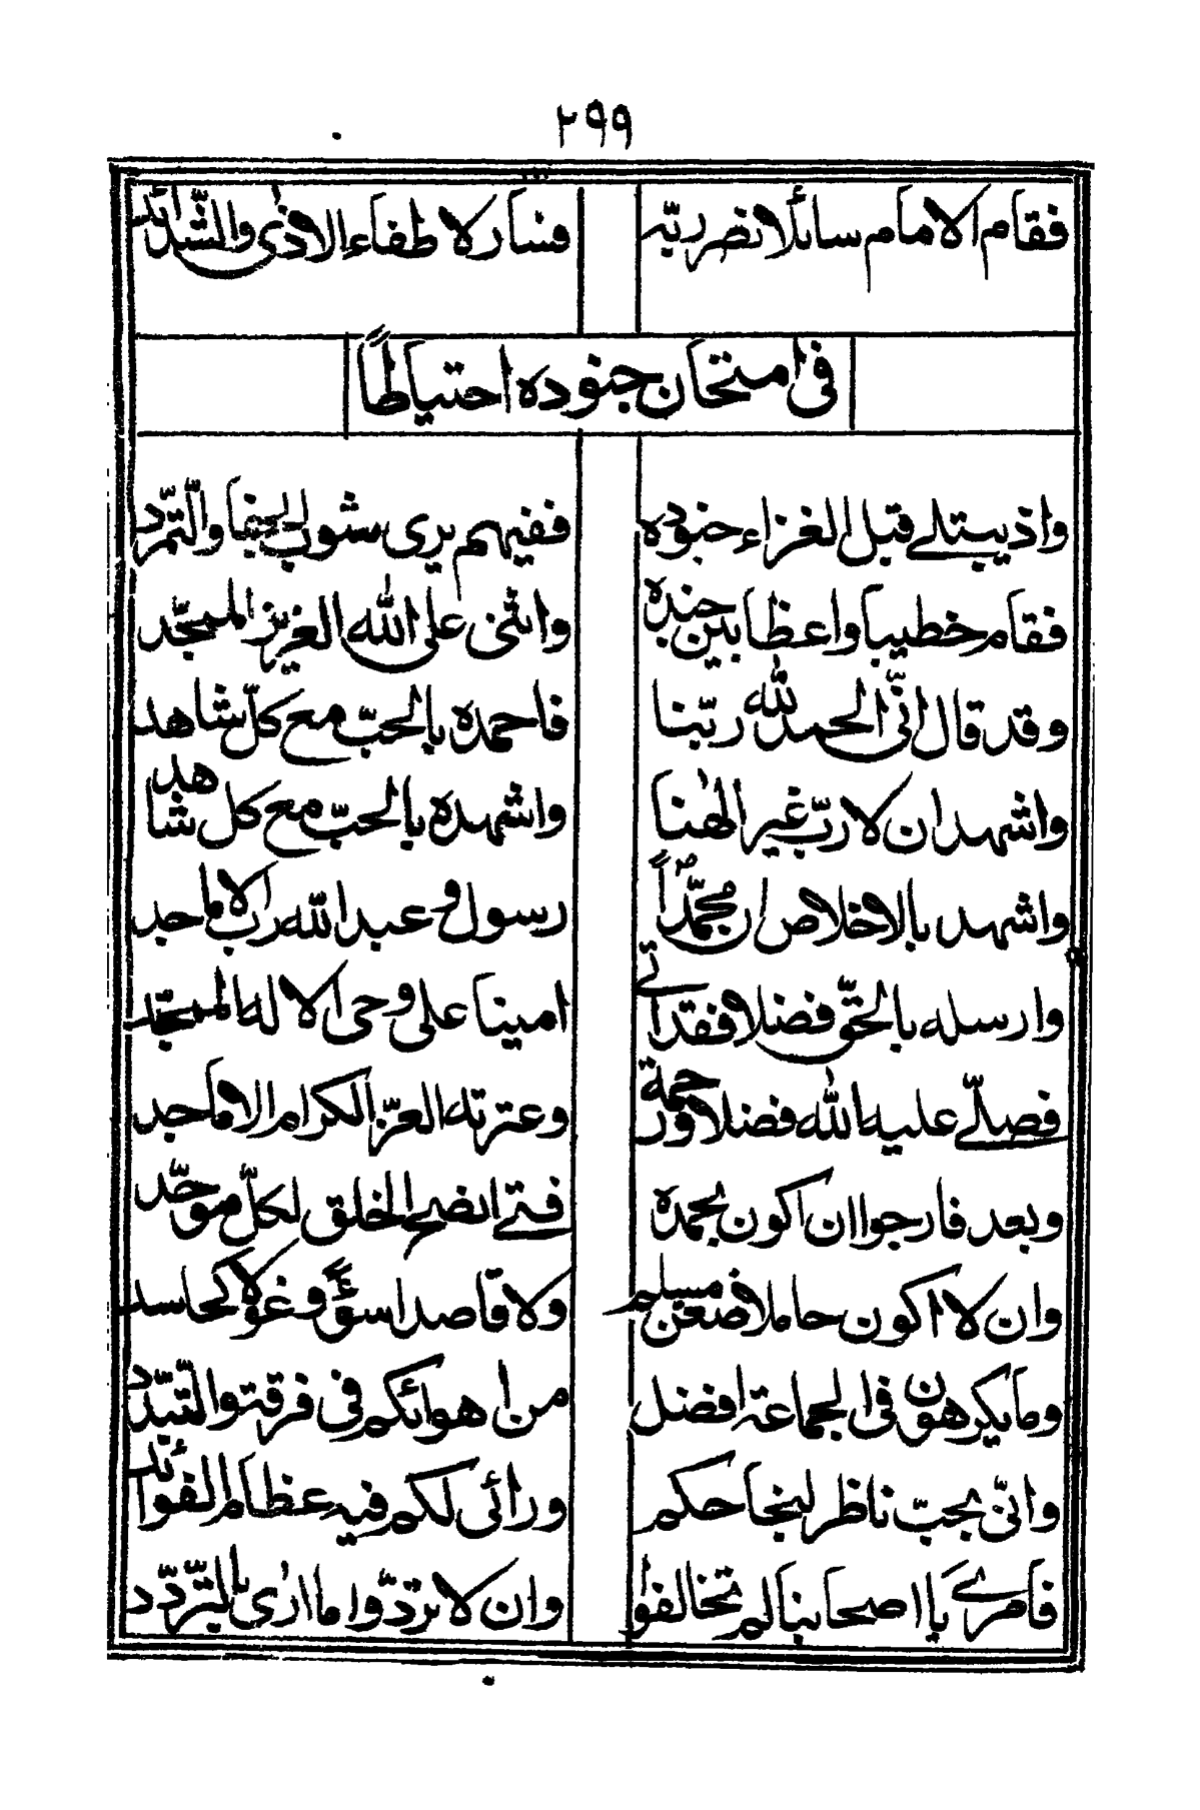 ٢٩٩
فقام الامام سائلا نصر ربّه فسار لا طفاء الاذى والشّدائد
فى امتحان جنوده احتياطاً
واذ يبتلے قبل الغزاء جنوده ففيهم يرى شوب الجنا والتّمرّد
فقام خطيبا واعظا بين جنده واثنى على الله العزيز الممجّد
وقد قال انّى الحمد لله ربّنا فاحمده بالحبّ مع كلّ شاهد
واشهد ان لا ربّ غير الهنا واشهده بالحبّ مع كل شاهد
واشهد بالاخلاص ان محمّداً رسول وعبد الله راب الاماجد
وارسله بالحقّ فضلا فقد اتى امينا على وحى الاله الممجّد
فصلّے عليه الله فضلا ورحمة وعترته العزّ الكرام الاماجد
وبعد فارجوا ان اكون بحمده فتے انصح الخلق لكلّ موحّد
وان لا اكون حاملا ضغن مسلم ولا قاصدا سوءً وغولا كحاسد
وما يكرهون فى الجماعة افضل من اهوائكم فى فرقة والتبدّد
وانّى بحبّ ناظر لنجاحكم ورائى لكم فيه عظام الفوائد
فامرے يا اصحابنا لم تخالفوا وان لا تردّوا ما ارى بالتردّد